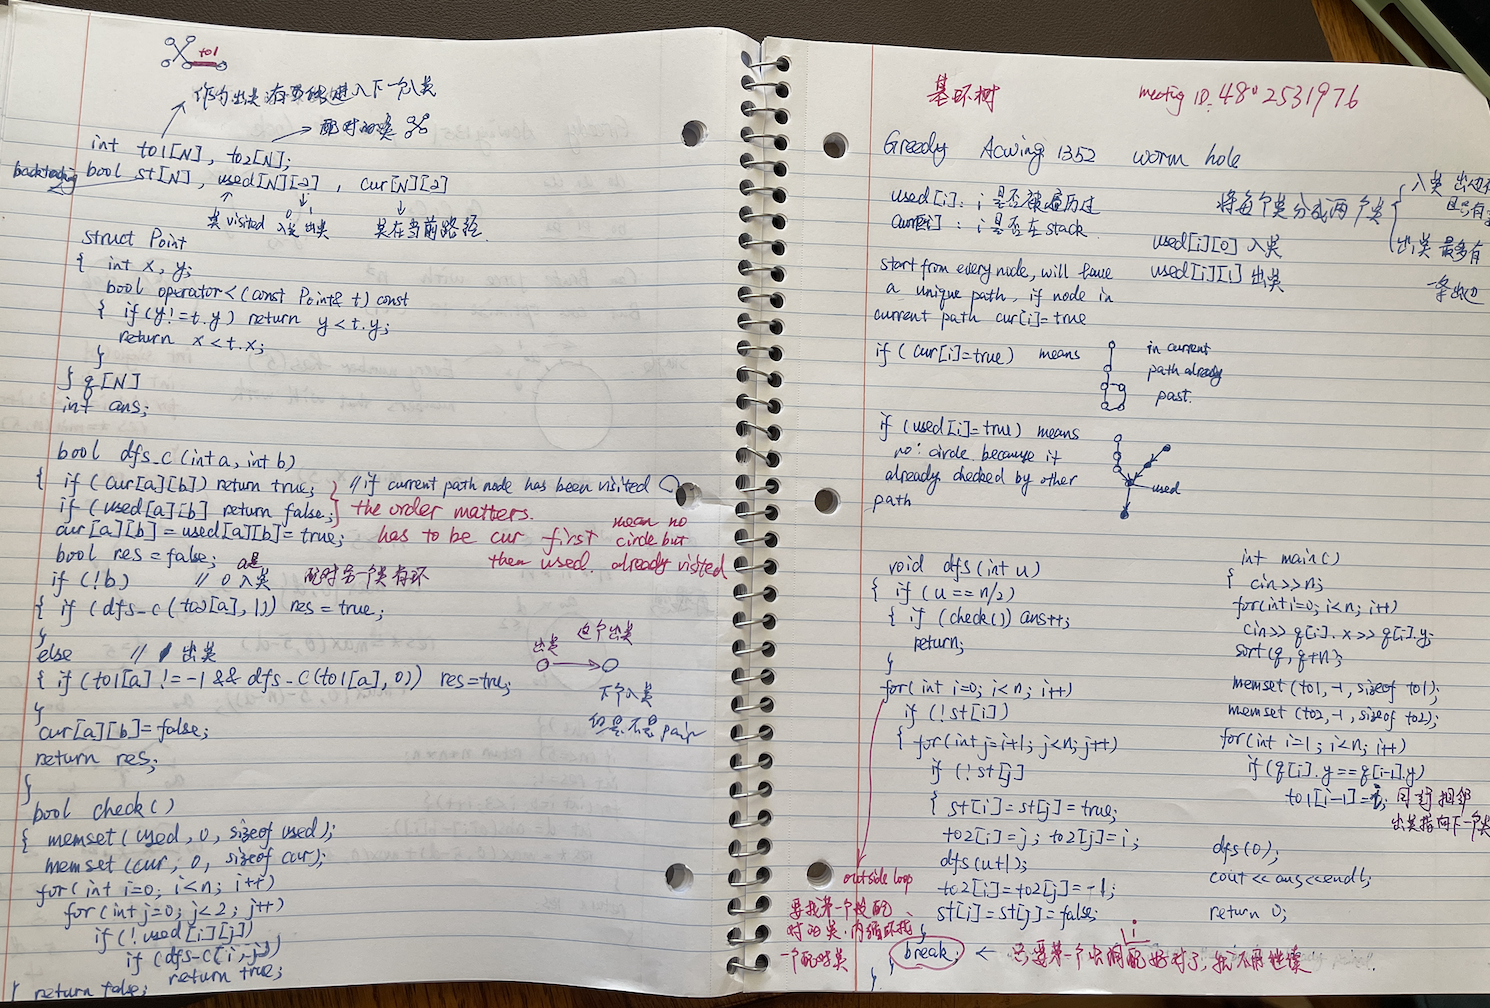 to1
作为出类 有 进入下一个入类
配对的类
int to1[N], to2[N];
backtracking bool st[N], used[N][2], cur[N][2]
类visited 0 入类 1 出类 类在当前路径.
struct Point
{ int x, y;
bool operator<(const Point& t) const
{ if(y!=t.y) return y<t.y;
return x<t.x;
}
} q[N]
int ans;
bool dfs_c(int a, int b)
{ if (cur[a][b]) return true; // if current path node has been visited
if (used[a][b] return false; the order matters.
cur[a][b]=used[a][b]=true; has to be cur first mean no circle but
bool res=false; then used. already visited
if (!b) // a是 0入类 配对另一个类有环
{ if (dfs_c(to2[a],1)) res=true;
}
else // 1 出类
{ if(to1[a]!=-1 && dfs_C(to1[a],0)) res=true;
}
cur[a][b]=false;
return res;
}
出类 这个出类
下个入类
但是不是pair
bool check()
{ memset(used,0,sizeof used);
memset(cur,0,sizeof cur);
for(int i=0; i<n; i++)
for(int j=0; j<2; j++)
if(!used[i][j])
if(dfs_c(i,j))
return true;
} return false;
基环树 meetig ID: 480 2531976
Greedy Acwing 1352 worm hole
used[i]: i是否被遍历过
cur[i]: i是否在stack
将每个类分成两个类
入类
出类 最多有
一条出边
used[i][0] 入类
used[i][1] 出类
start from every node, will have
a unique path, if node in
current path cur[i]=true
if (cur[i]=true) means
in current
path already
past.
if (used[i]=true) means
no circle because it
already checked by other
path
used
void dfs(int u)
{ if (u==n/2)
{ if (check()) ans++;
return;
}
for(int i=0; i<n; i++)
if (!st[i])
{ for(int j=i+1; j<n; j++)
if (!st[j]
{ st[i]=st[j]=true;
to2[i]=j; to2[j]=i;
dfs(u+1);
to2[i]=to2[j]=-1;
st[i]=st[j]=false;
}
break;
}
}
outside loop
要找第一个被配
对的类,内循环找
一个配对类
i
← 只要第一个 配好对了, 就不用继续
int main()
{ cin>>n;
for(int i=0; i<n; i++)
cin>> q[i].x >> q[i].y;
sort(q, q+n);
memset(to1,-1,sizeof to1);
memset(to2,-1,sizeof to2);
for(int i=1; i<n; i++)
if(q[i].y==q[i-1].y)
to1[i-1]=i; 同行相邻
出类指向下一个类
dfs(0);
cout<<ans<<endl;
return 0;